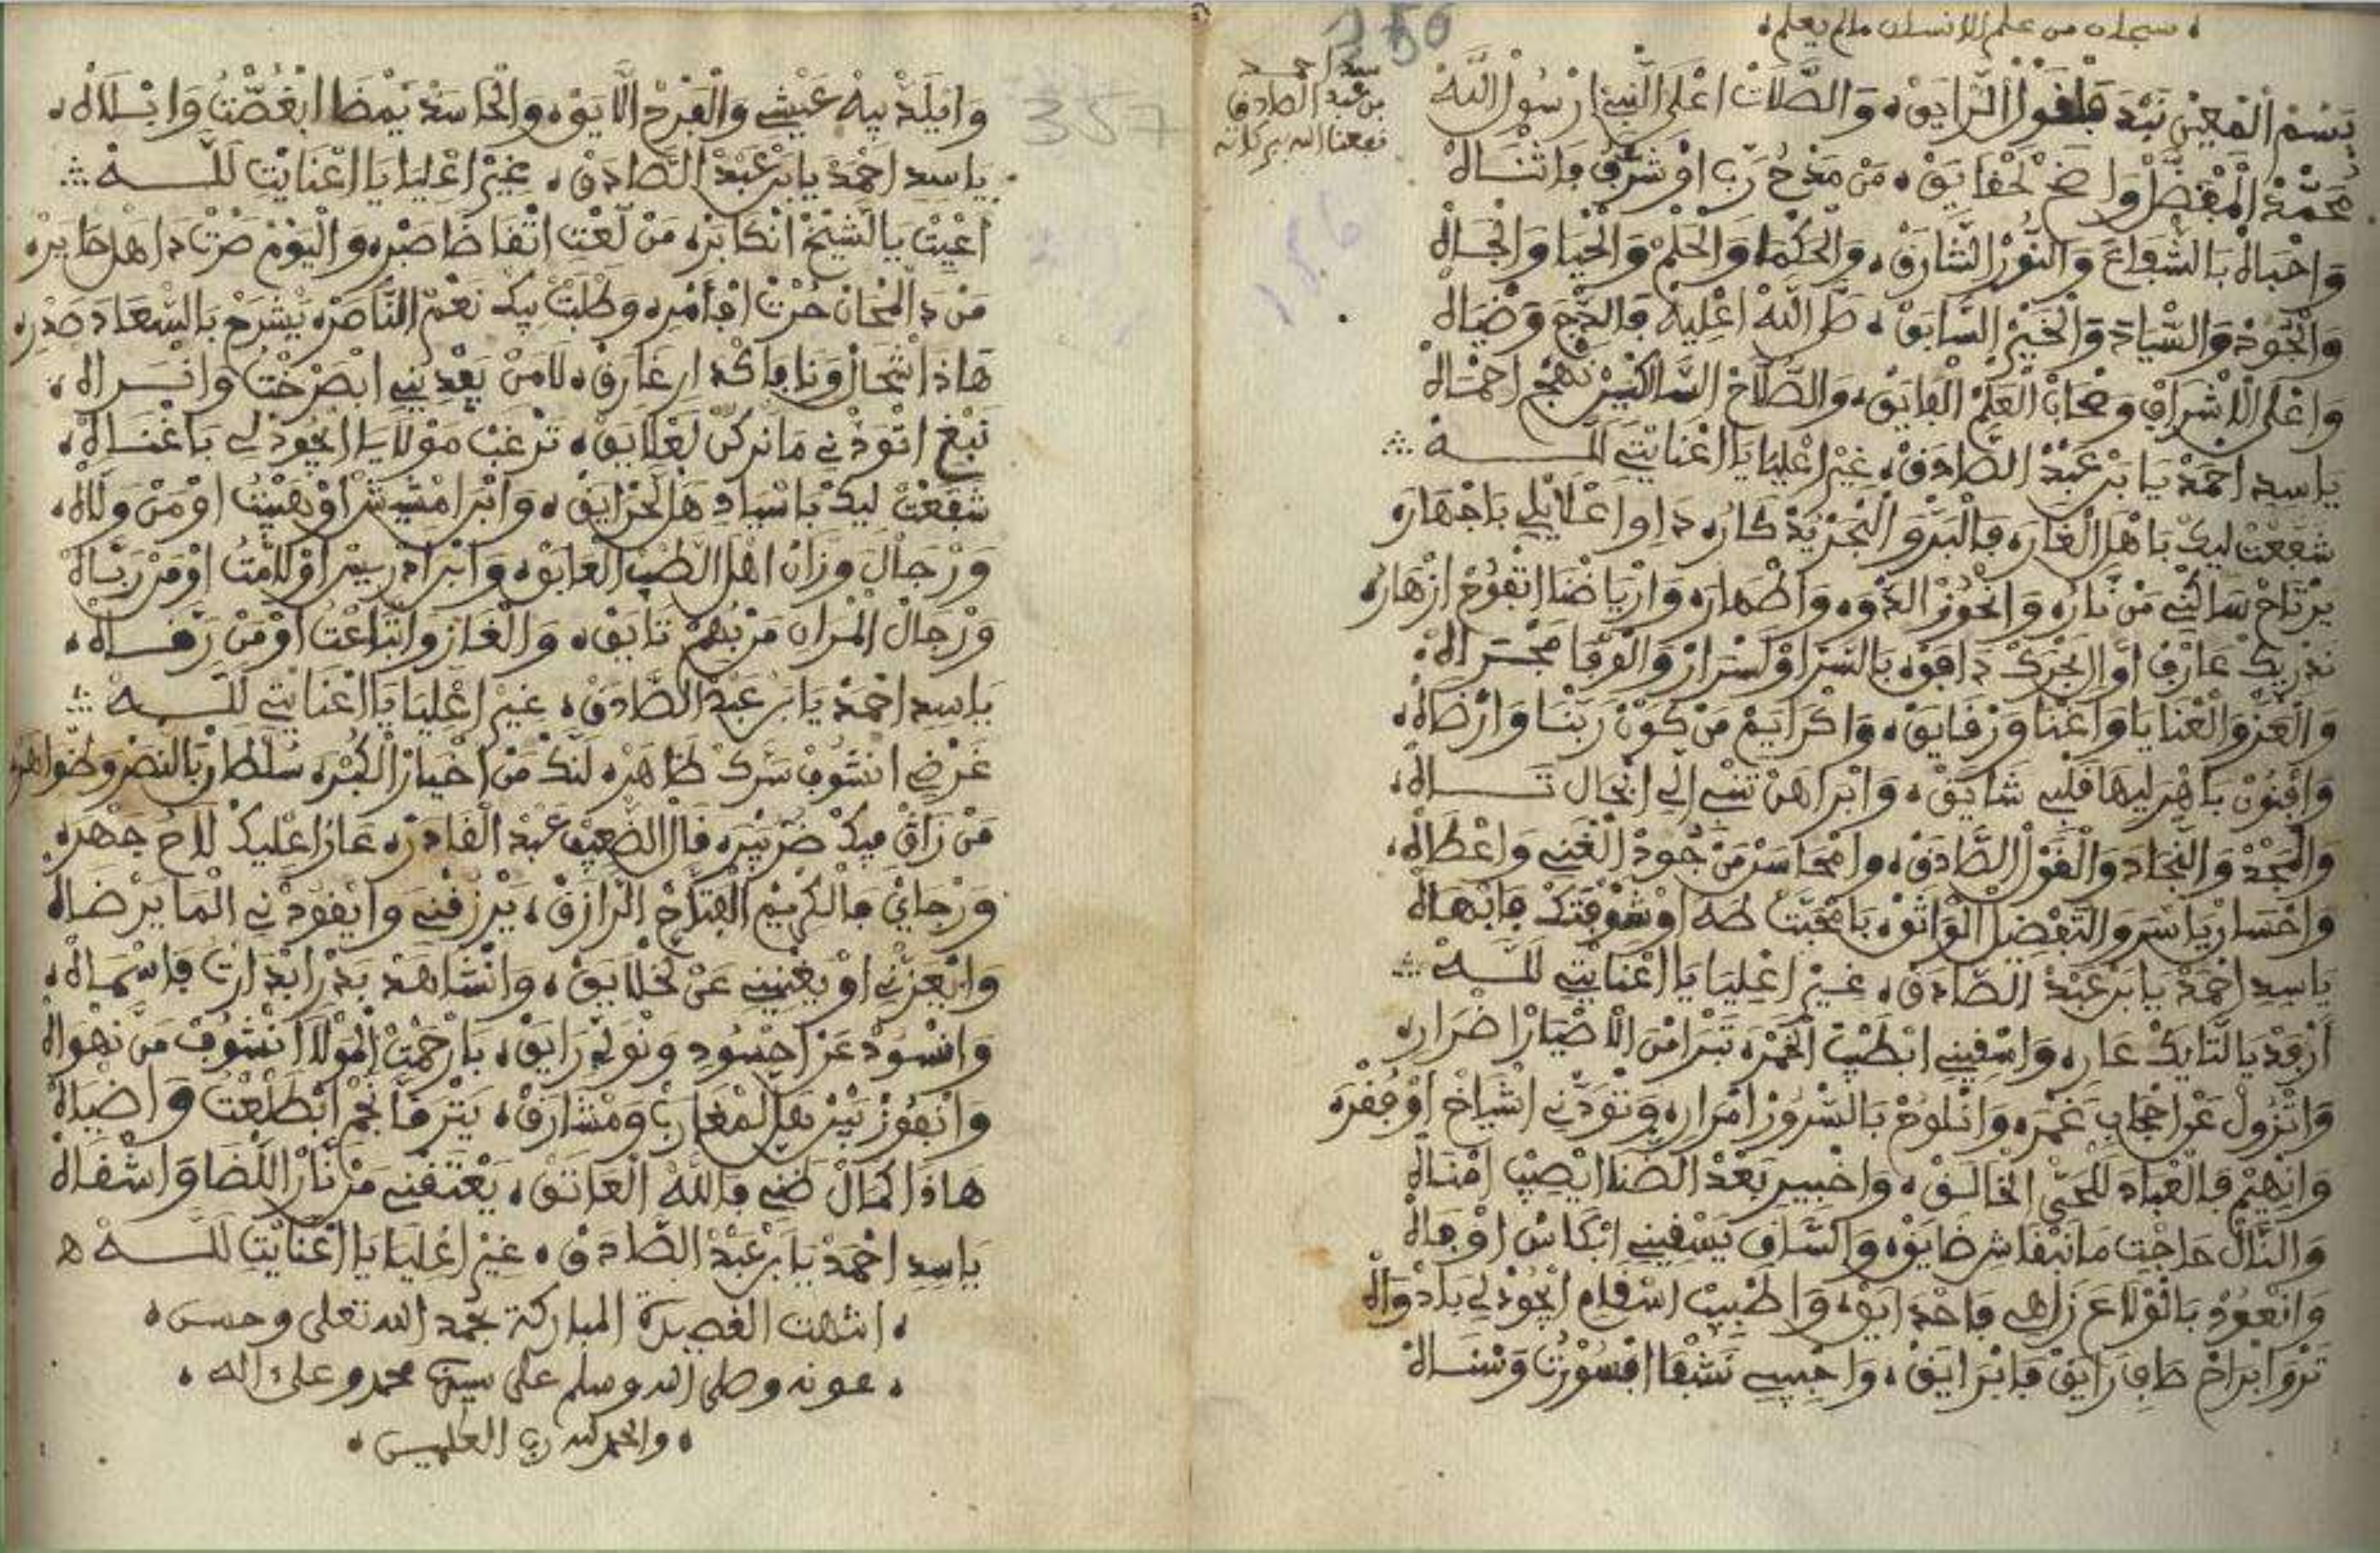 سبحان من علم الانسان مالم يعلم
156
سيد احمد
بن عبد الصادق
نفعنا الله ببركاته
بَسْم الْمُعِينْ نَبْدَ فَلقَوْلْ الرَّايَقْ، وَالصَّلاتْ اعْلَى النَّبِي ارْسُولْ اللَّهْ
مُحَمَّدْ الْمُفَضَّلْ وَاضَحْ لَحْقَايَقْ، مَنْ مَدْحُ رَبِّ اوْ شَرَّفُ وَاثْنَاهْ
وَاحْبَاهْ بَالشَّفَاعَ وَالنُّورْ الشَّارَقْ، وَالْحَكْمَا وَالْحَلْمْ وَالْحْيَا وَالْجَاهْ
وَالْجُودْ وَالسِّيَادَ وَالْخَيْرْ السَّابَقْ، صَلَّ اللهْ اعْلِيهْ فَالدّْجَ وَضْيَاهْ
وَاعْلَى الاَشْرَافْ وَصْحَابْ الْعَلْمْ الْفَايَقْ، وَالصُّلاَّحْ السَّالْكِينْ نَهْجْ احْمَاهْ
يَاسِيد احْمَدْ يَا بَنْ عَبْدْ الصَّادَقْ، غِيرْ اعْلِيَا يَا اعْنَايْتِي لَلَّـــهْ
شَفَعْتْ لِيكْ بَاهْلْ الْغَارَه فَالْبَرّْ وَالْبْحَرْ يَدْكَارُه دَاوِ اعْلاَيْلِي بَاجْهَارَه
يَرْتَاحْ سَاكْنِي مَنْ نَارُه وَانْحُوزْ الدّْوَه وَاطْهَارَه وَارْيَاضْنَا اتْفُوحْ ازْهَارُه
نَدْرِيكْ عَارَفْ اوَّالَجْرَكْ دَاهَقْ بَالسَّرّْ اوْ لَسْرَارْ وَالْفَرْقَا مَجْرَاهْ
وَالْعَزّْ وَالْعْنَايَا وَاعْنَا وَرْقَايَقْ، وَاكْرَايَمْ مَنْ كَوْنْ رَبْنَا وَارْضَاهْ
وَافْنُونْ بَاهْرَ لِيهَا قَلْبِي شَايَقْ، وَابْرَاهَنْ تَنْسِي الِّي انْجَال تَـــاهْ
وَالْمَجْدْ وَالنّْجَادَ وَالْقَوْلْ الصَّادَقْ، وَامْحَاسَنْ مَنْ جُودْ الْغْنِي وَاعْطَاهْ
وَاحْسَانْ يَاسَرْ وَالتَّفْضِيلْ الْوَاثَقْ، بَامْحَبَّتْ طَهَ اوْ شَوْقْتَكْ فَابْهَاهْ
يَاسِيد احْمَدْ يَا بَنْ عَبْدْ الصَّادَقْ، غِيرْ اعْلِيَا يَا اعْنَايْتِي لَلَّـــهْ
ارْفَدْ يَا لتَّايَكْ عَارِه، وَاسْقِينِي ابْطِيبْ الْخَمْرَه تَبْرَا مْنَ الاَضْيَارْ اضْرَارِه
وَاتْزُولْ عَنْ احْجَابِي غَمْرَه وَانْلُوحْ بَالسُّرُورْ امْرَارِه وَتْوَدّْنِي اشْيَاخْ اوْ فُقْرَه
وَانْهِيمْ فَالْعْبَادَ لَلْحَيّْ الْخَالَقْ، وَاحْبِيبِ بَعْدْ الضْنَا ايْصِيبْ امْنَاهْ
وَالنَّالْ حَاجْتِ مَانَبْقَاشِ ضَايَقْ، وَالسَّاقِ يَسْقِينِي ابْكَاسُ اوْفَاهْ
وَانْعُودْ بَالْوْلاَعَ زَاهِي فَاحْدَايَقْ، وَاطْبِيبْ اسْقَامِي ايْجُودْ لِي بَادْوَاهْ
تَرْوَا ابْرَاحْ صَافِ رَايَقْ فَابْرَايَقْ، وَاحْبِيبِي نَشْفَا ابْسُورْتُ وَسْنَاهْ
357
وَايْلَدّْ بِيهْ عَيْشِي وَالْفَرْحْ الاَّيَقْ، وَالْحَاسَدْ يَمْضَا ابْغُصّْتُ وَابْلاَهْ
يَاسِيد احْمَدْ يَا بَنْ عَبْدْ الصَّادَقْ، غِيرْ اعْلِيَا يَا اعْنَايْتِ لَلَّـــهْ
اعْيِيتْ يَا الشِّيخْ انْكَابَرْه مَنْ لَّعْتِ اتْقَاضَا صَبْرِه وَالْيَوْمْ صَرْتْ دَاهَلْ حَايَرْه
مَنْ دَا لْمْحَانْ حُرْتْ افَامْرِه وَطْلَبْتْ بِيكْ نَعْمْ النَّاصَرْه يَشْرَحْ بَالسّْعَادَ صَدْرِه
هَاذَا اشْحَالْ وَنَا فَاكْدَارِ غَارَقْ، لاَمَنْ يَفْدِينِي ابْصَرْخْتُ وَانْـــرَاهْ
نَبْغِ اتْوَدّْنِي مَا نَركَنْ لَعْلاَيَقْ، تَرْغَبْ مَوْلاَيَا ايْجُودْ لِي بَاغْنَاهْ
شَفَعْتْ لِيكْ بَاسْيَادِ هَلْ لَحْرَايَقْ، وَابْرَا مْشِيشْ اوْ هِيبْتُ اوْ مَنْ وَلاَّهْ
وَرْجَالْ وَزَّانْ اهْلْ الطَّبّْ الْعَابَقْ، وَابْرَا دْرِيسْ اوْ لاَمْتُ اوْ مَنْ رَبَّاهْ
وَرْجَالْ الْمْرَانِ مَنْ بْهُمْ تَايَقْ، وَالْغَازِ وَاتْبَاعْتُ اوْ مَنْ رَقَّـــاهْ
يَاسِيد احْمَدْ يَا بَنْ عَبْدْ الصَّادَقْ، غِيرْ اعْلِيَا يَا اعْنَايْتِي لَلَّـــهْ
غَرْضِي انْشُوفْ سَرَّكْ ظَاهَرْه لَنَّكْ مَنْ اخْيَارْ الْكُبْرَه سُلْطَانْ بَالنَّصْرْ وظْوَاهْرِه
مَنْ زَاقْ فِيكْ ضَرّْ يَبْرَه قَالْ الضْعِيفْ عَبْدْ الْقَادَرْه عَارَا عْلِيكْ لاَحُ جَهْرَه
وَرْجَايَ فَالْكْرِيمْ الْفَتَّاحْ الرَّازَقْ، يَرْزَقْنِي وَايْقُودْنِي الْمَا يَرْضَاهْ
وَايْعَزّْنِي اوْ يَغْنِينِي عَنْ لَخْلاَيَقْ، وَانْشَاهَدْ بَدْرْ ابْدَارِتْ فَاسْمَاهْ
وَانْسُودْ عَنْ احْسُودِي وَنْوَلِّي رَايَقْ، بَارْحَمْتْ الْمَوْلاَ انْشُوفْ مَنْ نَهْوَاهْ
وَانْفُوزْ بِينْ هَلْ لَمْغَارَبْ وَمْشَارَقْ، يَتْرَقَّا نَجْمْ ابْطَلْعْتُ وَاضْيَاهْ
هَاذَا كْمَالْ ظَنِّي فَاللهْ الْعَاتَقْ، يَعْتَقْنِي مَنْ نَارْ اللّْضَا وَاشْفَاهْ
يَاسِيد احْمَدْ يَا بَنْ عَبْدْ الصَّادَقْ، غِيرْ اعْلِيَا يَا اعْنَايْتِ لَلَّـــهْ ه
انتهت القصيدة المباركة بحمد الله تعلى وحسن
عونه وصلى الله وسلم على سيدنا محمد وعلى ءاله
والحمد لله رب العلمين